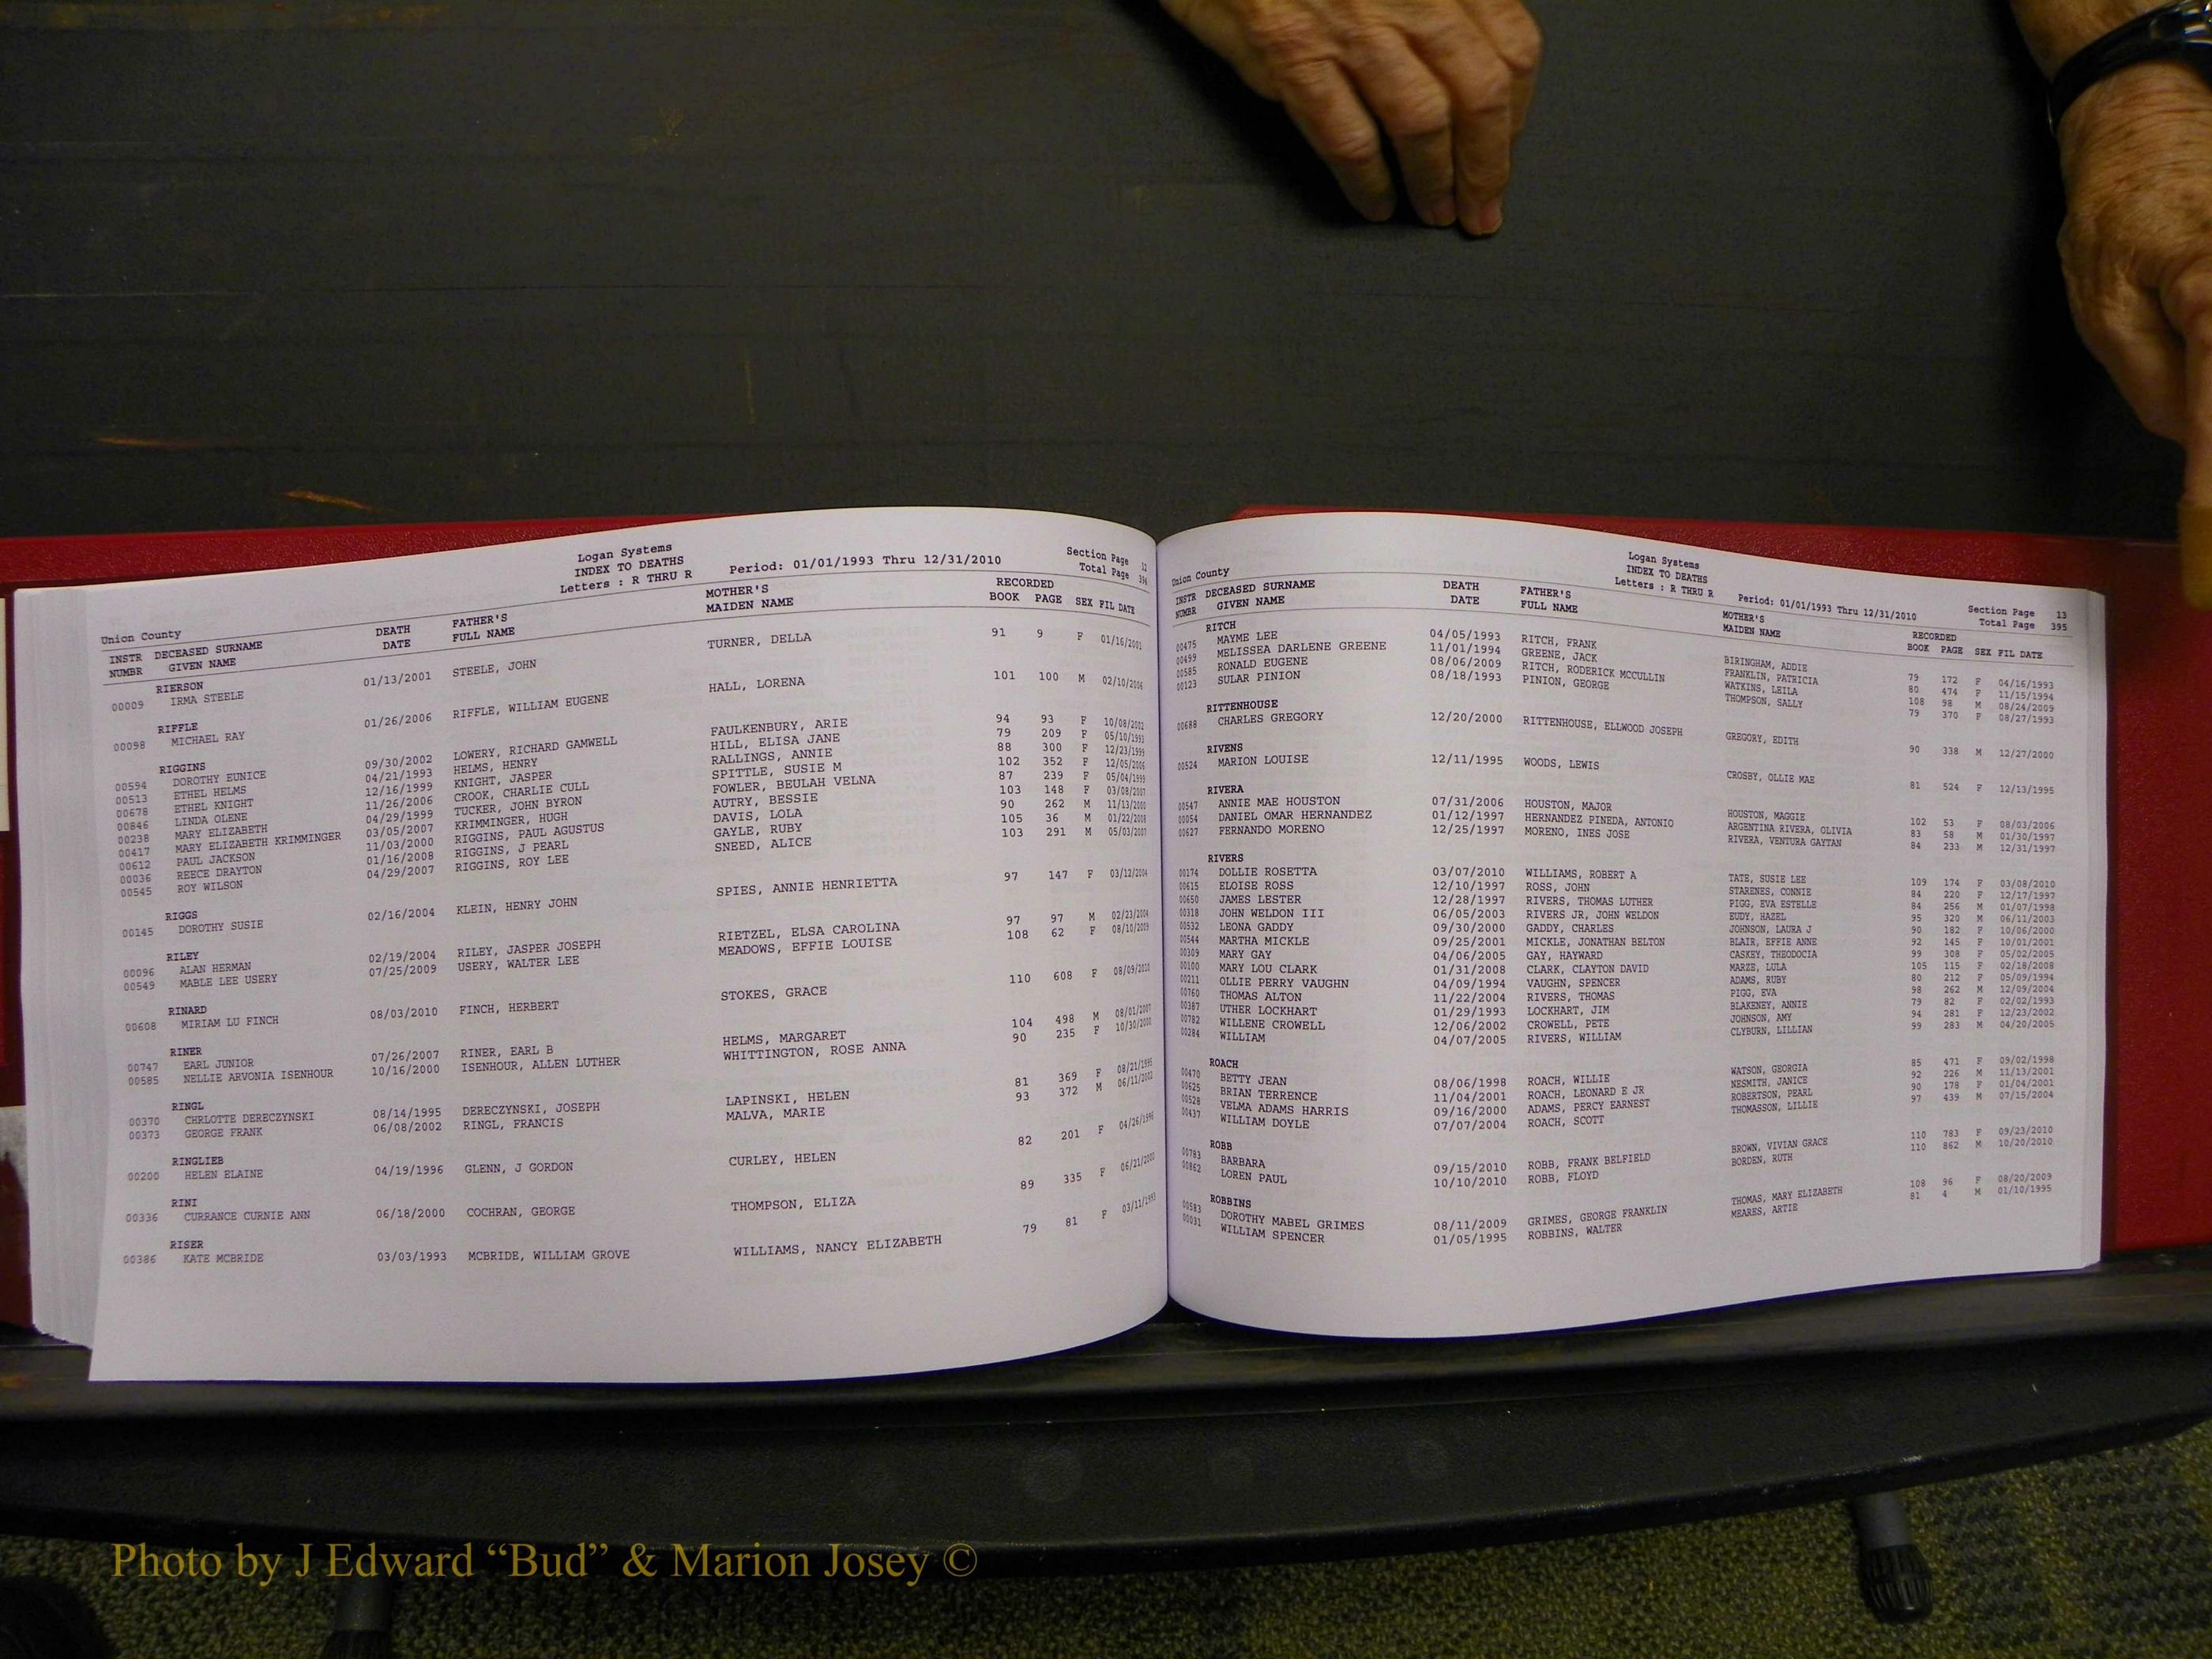 Logan Systems
INDEX TO DEATHS
Letters : R THRU R Period: 01/01/1993 Thru 12/31/2010
Section Page 12
Total Page 394
Union County
INSTR DECEASED SURNAME DEATH FATHER'S MOTHER'S RECORDED
NUMBR GIVEN NAME DATE FULL NAME MAIDEN NAME BOOK PAGE SEX FIL DATE
RIERSON
00009 IRMA STEELE 01/13/2001 STEELE, JOHN TURNER, DELLA 91 9 F 01/16/2001
RIFFLE
00098 MICHAEL RAY 01/26/2006 RIFFLE, WILLIAM EUGENE HALL, LORENA 101 100 M 02/10/2006
RIGGINS
00594 DOROTHY EUNICE 09/30/2002 LOWERY, RICHARD GAMWELL FAULKENBURY, ARIE 94 93 F 10/08/2002
00513 ETHEL HELMS 04/21/1993 HELMS, HENRY HILL, ELISA JANE 79 209 F 05/10/1993
00678 ETHEL KNIGHT 12/16/1999 KNIGHT, JASPER RALLINGS, ANNIE 88 300 F 12/23/1999
00846 LINDA OLENE 11/26/2006 CROOK, CHARLIE CULL SPITTLE, SUSIE M 102 352 F 12/05/2006
00238 MARY ELIZABETH 04/29/1999 TUCKER, JOHN BYRON FOWLER, BEULAH VELNA 87 239 F 05/04/1999
00417 MARY ELIZABETH KRIMMINGER 03/05/2007 KRIMMINGER, HUGH AUTRY, BESSIE 103 148 F 03/08/2007
00612 PAUL JACKSON 11/03/2000 RIGGINS, PAUL AGUSTUS DAVIS, LOLA 90 262 M 11/13/2000
00036 REECE DRAYTON 01/16/2008 RIGGINS, J PEARL GAYLE, RUBY 105 36 M 01/22/2008
00545 ROY WILSON 04/29/2007 RIGGINS, ROY LEE SNEED, ALICE 103 291 M 05/03/2007
RIGGS
00145 DOROTHY SUSIE 02/16/2004 KLEIN, HENRY JOHN SPIES, ANNIE HENRIETTA 97 147 F 03/12/2004
RILEY
00096 ALAN HERMAN 02/19/2004 RILEY, JASPER JOSEPH RIETZEL, ELSA CAROLINA 97 97 M 02/23/2004
00549 MABLE LEE USERY 07/25/2009 USERY, WALTER LEE MEADOWS, EFFIE LOUISE 108 62 F 08/10/2009
RINARD
00608 MIRIAM LU FINCH 08/03/2010 FINCH, HERBERT STOKES, GRACE 110 608 F 08/09/2010
RINER
00747 EARL JUNIOR 07/26/2007 RINER, EARL B HELMS, MARGARET 104 498 M 08/01/2007
00585 NELLIE ARVONIA ISENHOUR 10/16/2000 ISENHOUR, ALLEN LUTHER WHITTINGTON, ROSE ANNA 90 235 F 10/30/2000
RINGL
00370 CHRLOTTE DERECZYNSKI 08/14/1995 DERECZYNSKI, JOSEPH LAPINSKI, HELEN 81 369 F 08/21/1995
00373 GEORGE FRANK 06/08/2002 RINGL, FRANCIS MALVA, MARIE 93 372 M 06/11/2002
RINGLIEB
00200 HELEN ELAINE 04/19/1996 GLENN, J GORDON CURLEY, HELEN 82 201 F 04/26/1996
RINI
00336 CURRANCE CURNIE ANN 06/18/2000 COCHRAN, GEORGE THOMPSON, ELIZA 89 335 F 06/21/2000
RISER
00386 KATE MCBRIDE 03/03/1993 MCBRIDE, WILLIAM GROVE WILLIAMS, NANCY ELIZABETH 79 81 F 03/11/1993
Logan Systems
INDEX TO DEATHS
Letters : R THRU R Period: 01/01/1993 Thru 12/31/2010
Section Page 13
Total Page 395
Union County
INSTR DECEASED SURNAME DEATH FATHER'S MOTHER'S RECORDED
NUMBR GIVEN NAME DATE FULL NAME MAIDEN NAME BOOK PAGE SEX FIL DATE
RITCH
00475 MAYME LEE 04/05/1993 RITCH, FRANK BIRINGHAM, ADDIE 79 172 F 04/16/1993
00499 MELISSEA DARLENE GREENE 11/01/1994 GREENE, JACK FRANKLIN, PATRICIA 80 474 F 11/15/1994
00585 RONALD EUGENE 08/06/2009 RITCH, RODERICK MCCULLIN WATKINS, LEILA 108 98 M 08/24/2009
00123 SULAR PINION 08/18/1993 PINION, GEORGE THOMPSON, SALLY 79 370 F 08/27/1993
RITTENHOUSE
00688 CHARLES GREGORY 12/20/2000 RITTENHOUSE, ELLWOOD JOSEPH GREGORY, EDITH 90 338 M 12/27/2000
RIVENS
00524 MARION LOUISE 12/11/1995 WOODS, LEWIS CROSBY, OLLIE MAE 81 524 F 12/13/1995
RIVERA
00547 ANNIE MAE HOUSTON 07/31/2006 HOUSTON, MAJOR HOUSTON, MAGGIE 102 53 F 08/03/2006
00054 DANIEL OMAR HERNANDEZ 01/12/1997 HERNANDEZ PINEDA, ANTONIO ARGENTINA RIVERA, OLIVIA 83 58 M 01/30/1997
00627 FERNANDO MORENO 12/25/1997 MORENO, INES JOSE RIVERA, VENTURA GAYTAN 84 233 M 12/31/1997
RIVERS
00174 DOLLIE ROSETTA 03/07/2010 WILLIAMS, ROBERT A TATE, SUSIE LEE 109 174 F 03/08/2010
00615 ELOISE ROSS 12/10/1997 ROSS, JOHN STARENES, CONNIE 84 220 F 12/17/1997
00650 JAMES LESTER 12/28/1997 RIVERS, THOMAS LUTHER PIGG, EVA ESTELLE 84 256 M 01/07/1998
00318 JOHN WELDON III 06/05/2003 RIVERS JR, JOHN WELDON EUDY, HAZEL 95 320 M 06/11/2003
00532 LEONA GADDY 09/30/2000 GADDY, CHARLES JOHNSON, LAURA J 90 182 F 10/06/2000
00544 MARTHA MICKLE 09/25/2001 MICKLE, JONATHAN BELTON BLAIR, EFFIE ANNE 92 145 F 10/01/2001
00309 MARY GAY 04/06/2005 GAY, HAYWARD CASKEY, THEODOCIA 99 308 F 05/02/2005
00100 MARY LOU CLARK 01/31/2008 CLARK, CLAYTON DAVID MARZE, LULA 105 115 F 02/18/2008
00211 OLLIE PERRY VAUGHN 04/09/1994 VAUGHN, SPENCER ADAMS, RUBY 80 212 F 05/09/1994
00760 THOMAS ALTON 11/22/2004 RIVERS, THOMAS PIGG, EVA 98 262 M 12/09/2004
00387 UTHER LOCKHART 01/29/1993 LOCKHART, JIM BLAKENEY, ANNIE 79 82 F 02/02/1993
00782 WILLENE CROWELL 12/06/2002 CROWELL, PETE JOHNSON, AMY 94 281 F 12/23/2002
00284 WILLIAM 04/07/2005 RIVERS, WILLIAM CLYBURN, LILLIAN 99 283 M 04/20/2005
ROACH
00470 BETTY JEAN 08/06/1998 ROACH, WILLIE WATSON, GEORGIA 85 471 F 09/02/1998
00625 BRIAN TERRENCE 11/04/2001 ROACH, LEONARD E JR NESMITH, JANICE 92 226 M 11/13/2001
00528 VELMA ADAMS HARRIS 09/16/2000 ADAMS, PERCY EARNEST ROBERTSON, PEARL 90 178 F 01/04/2001
00437 WILLIAM DOYLE 07/07/2004 ROACH, SCOTT THOMASSON, LILLIE 97 439 M 07/15/2004
ROBB
00783 BARBARA 09/15/2010 ROBB, FRANK BELFIELD BROWN, VIVIAN GRACE 110 783 F 09/23/2010
00862 LOREN PAUL 10/10/2010 ROBB, FLOYD BORDEN, RUTH 110 862 M 10/20/2010
ROBBINS
00583 DOROTHY MABEL GRIMES 08/11/2009 GRIMES, GEORGE FRANKLIN THOMAS, MARY ELIZABETH 108 96 F 08/20/2009
00031 WILLIAM SPENCER 01/05/1995 ROBBINS, WALTER MEARES, ARTIE 81 4 M 01/10/1995
Photo by J Edward “Bud” & Marion Josey ©